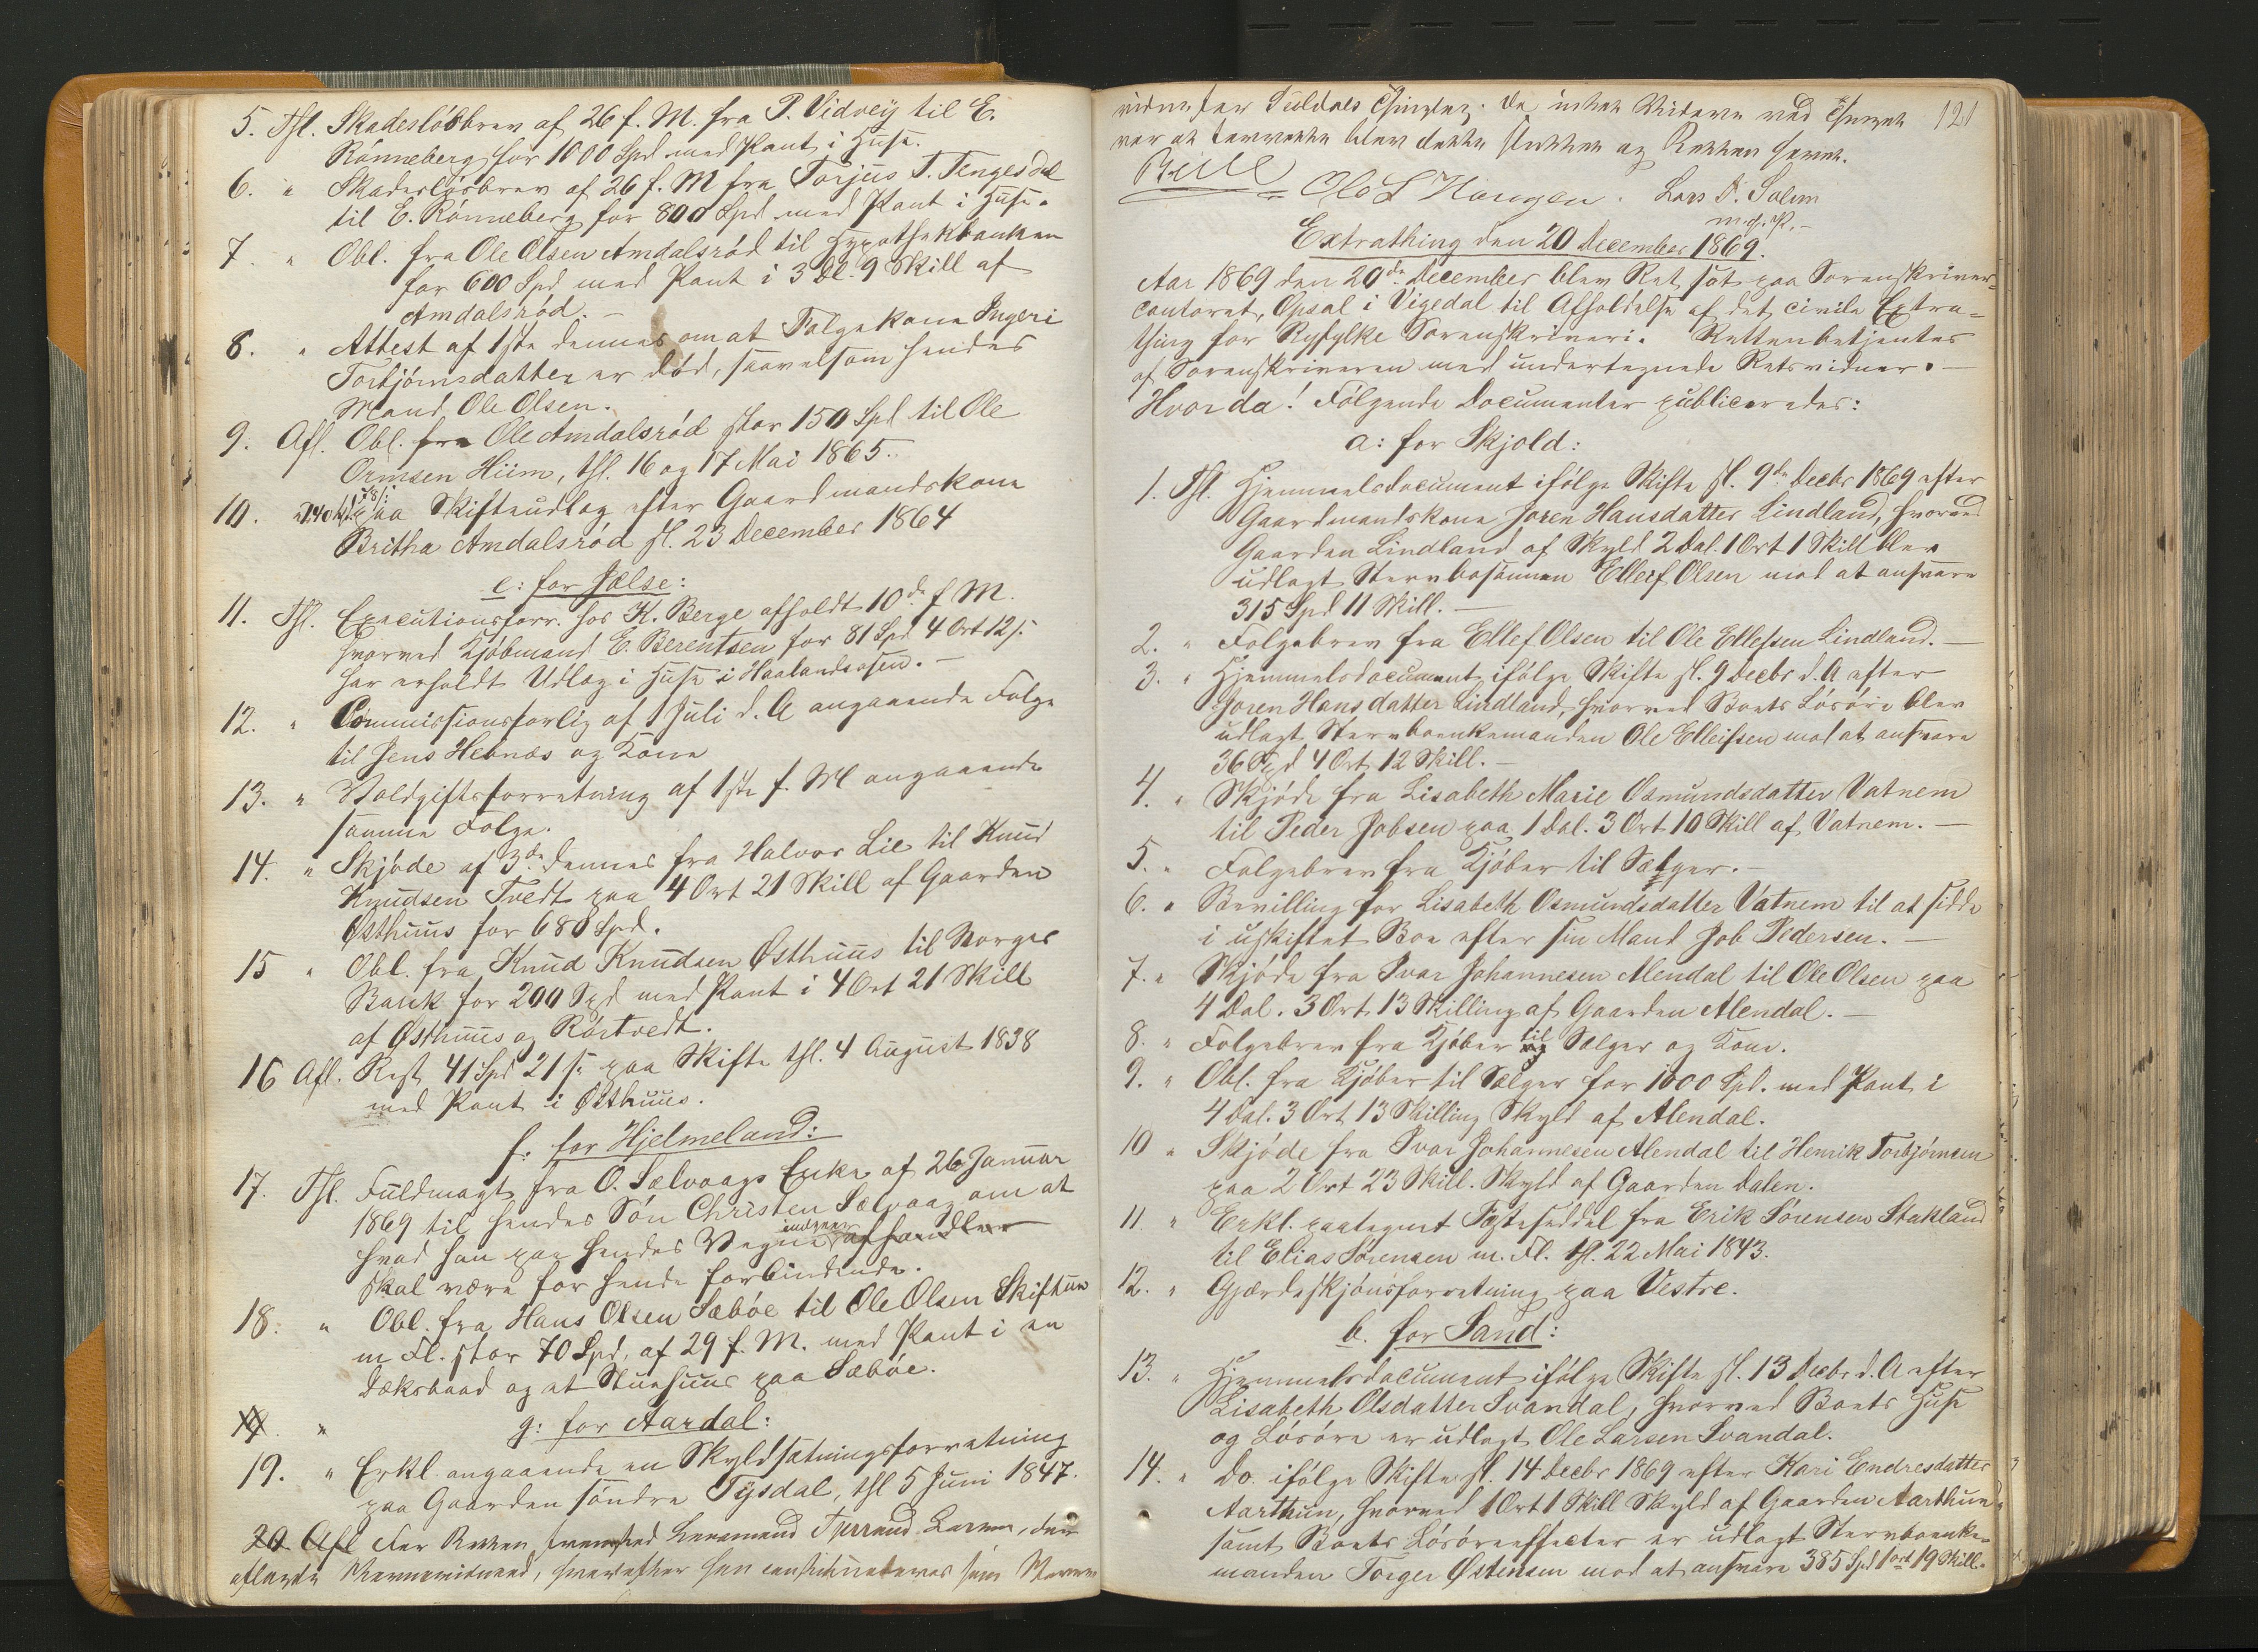 5. Thl. Skadesløsbrev af 26 f. M. fra P. Vidvey til E.
Rønneberg for 1000 Spd med Pant i Huse.
6. " Skadesløsbrev af 26 f. M fra Torjus T. Tengesdal
til E. Rønneberg for 800 Spd med Pant i Huse.
7. " Obl. fra Ole Olsen Amdalsrød til Hypothekbanken
for 600 Spd med Pant i 3 Dl. 9 Skill af
Amdalsrød. –
8. " Attest af 1ste dennes om at Folgekone Ingeri
Torbjørnsdatter er død, saavelsom hendes
Mand Ole Olsen.
9. Afl. Obl. fra Ole Amdalsrød stor 150 Spd til Ole
Ormsen Hiim, thl. 16 og 17 Mai 1865.
10. paa Skifteudlæg efter Gaardmandskone
Britha Amdalsrød sl. 23 December 1864
e: for Jelse:
11. Thl. Executionsforr. hos K. Berge afholdt 10de f. M.
hvorved Kjøbmand E. Berentsen for 81 Spd 4 Ort 12 s.
har erholdt Udlæg i Huse i Haalandsosen. –
12. " Commissionsforlig af 1 Juli d. A angaaende Folge
til Jens Hebnæs og Kone
13. " Voldgiftsforretning af 1ste f. M angaaende
samme Folge.
14. " Skjøde af 3de dennes fra Halvor Lie til Knud
Knudsen Tvedt paa 4 Ort 21 Skill af Gaarden
Østhuus for 680 Spd.
15 " Obl. fra Knud Knudsen Østhuus til Norges
Bank for 200 Spd med Pant i 4 Ort 21 Skill
af Østhuus og Rørtvedt.
16 Afl. Rest 41 Spd 21 s. paa Skifte thl. 4 August 1838
med Pant i Østhuus.
f. for Hjelmeland:
17. Thl. Fuldmagt fra O. Sælvaags Enke af 26 Januar
1869 til hendes Søn Christen Sælvaag om at
hvad han paa hendes Vegne indgaar afhandler
skal være for hende forbindende.
18. " Obl. fra Hans Olsen Sæbøe til Ole Olsen Skiftun
m Fl. stor 70 Spd. af 29 f. M. med Pant i en
Dæksbaad og et Stuehuus paa Sæbøe.
19. " g: for Aardal:
19. " Erkl. angaaende en Skyldsætningsforretning
paa Gaarden søndre Tysdal, thl 5 Juni 1847.
20 Afl For Retten fremstod Lensmand Larsen, der
aflagde hvorefter han constitueredes som
vidne for Suldals Thinglag. Da intet Videre ved Thinget
var at forrette blev dette sluttet og Retten hævet.
121
Ole L Hongen. Lars D. Salem
m. f. P. –
Extrathing den 20 December 1869.
Aar 1869 den 20de December blev Ret sat paa Sorenskriver-
contoret, Opsal i Vigedal til Afholdelse af det civile Extra-
thing for Ryfylke Sorenskriveri. Retten betjentes
af Sorenskriveren med undertegnede Retsvidner. –
Hvor da! Følgende Documenter publiceredes:
a: for Skjold:
1. Thl. Hjemmelsdocument ifølge Skifte sl. 9de Decbr 1869 efter
Gaardmandskone Joren Hansdatter Lindland, hvorved
Gaarden Lindland af Skyld 2 Dal. 1 Ort 1 Skill blev
udlagt Stervbosønnen Elleif Olsen mod at ansvare
315 Spd 11 Skill. –
2. " Folgebrev fra Ellef Olsen til Ole Ellefsen Lindland. –
3. " Hjemmelsdocument ifølge Skifte sl. 9 Decbr d. A efter
Joren Hansdatter Lindland, hvorved Boets Løsøre blev
udlagt Stervboenkemanden Ole Elleifsen mod at ansvare
36 Spd 4 Ort 12 Skill. –
4. " Skjøde fra Lisabeth Marie Osmundsdatter Vatnem
til Peder Jobsen paa 1 Dal. 3 Ort 10 Skill af Vatnem. –
5. " Folgebrev fra Kjøber til Sælger. –
6. " Bevilling for Lisabeth Osmundsdatter Vatnem til at sidde
i uskiftet Boe efter sin Mand Job Pedersen. –
7. " Skjøde fra Ivar Johannesen Alendal til Ole Olsen paa
4 Dal. 3 Ort 13 Skilling af Gaarden Alendal. –
8. " Folgebrev fra Kjøber til Sælger og Kone.
9. " Obl. fra Kjøber til Sælger for 1000 Spd. med Pant i
4 Dal. 3 Ort 13 Skilling Skyld af Alendal.
10 " Skjøde fra Ivar Johannesen Alendal til Henrik Torbjørnsen
paa 2 Ort 23 Skill. Skyld af Gaarden Dalen.
11. " Erkl. paategnet Fæsteseddel fra Erik Sørensen Stakland
til Elias Sørensen m. Fl. thl. 22 Mai 1843.
12. " Gjærdeskjønsforretning paa Vestre.
b. for Sand:
13. " Hjemmelsdocument ifølge Skifte sl. 13 Decbr d. A efter
Lisabeth Olsdatter Svandal, hvorved Boets Huse
og Løsøre er udlagt Ole Larsen Svandal.
14. " Do. ifølge Skifte sl. 14 Decbr 1869 efter Kari Endresdatter
Aarthun, hvorved 1 Ort 1 Skill Skyld af Gaarden Aarthun
samt Boets Løsøreeffecter er udlagt Stervboenke-
manden Torger Østensen mod at ansvare 385 Spd 1 ort 19 Skill.